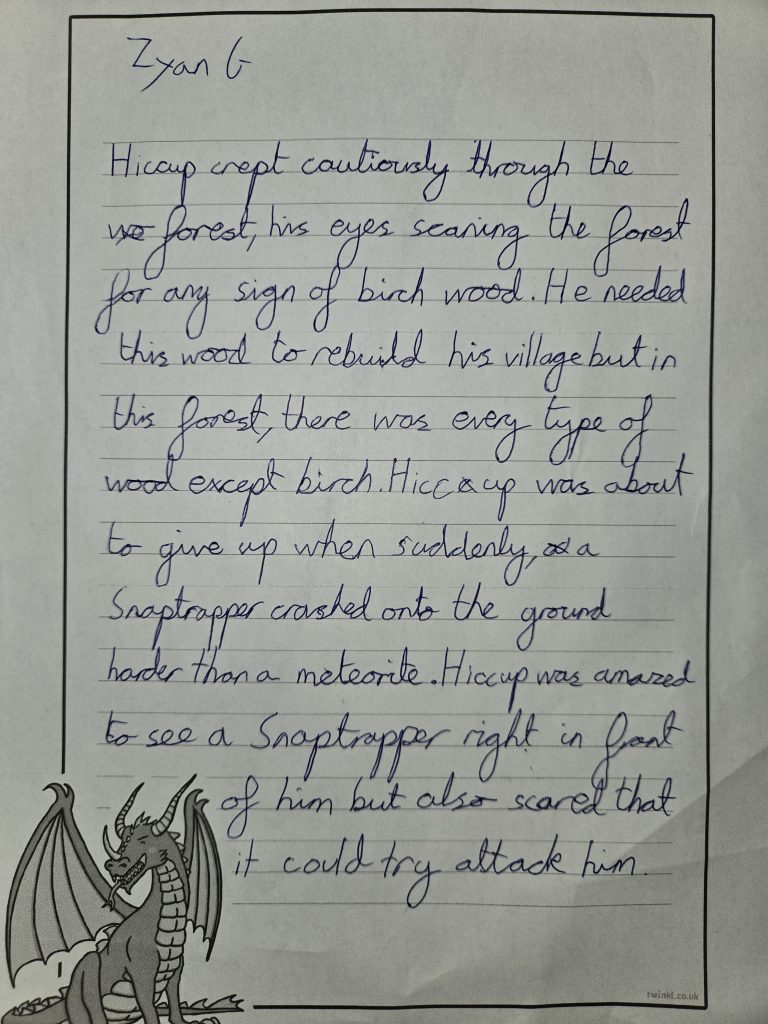 Zyan G
Hiccup crept cautiously through the
forest, his eyes scaning the forest
for any sign of birch wood. He needed
this wood to rebuild his village but in
this forest, there was every type of
wood except birch. Hiccup was about
to give up when suddenly, a
Snaptrapper crashed onto the ground
harder than a meteorite. Hiccup was amazed
to see a Snaptrapper right in front
of him but also scared that
it could try attack him.
twinkl.co.uk